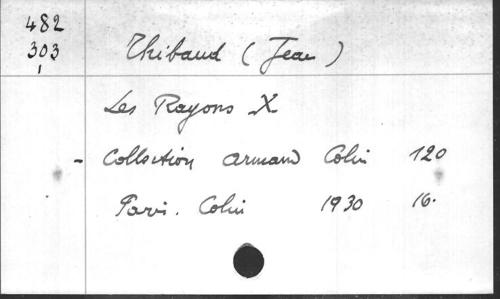 482
303
1
Thibaud (Jean)
Les Rayons X
- Collection Armand Colin 120
Paris. Colin 1930 16.